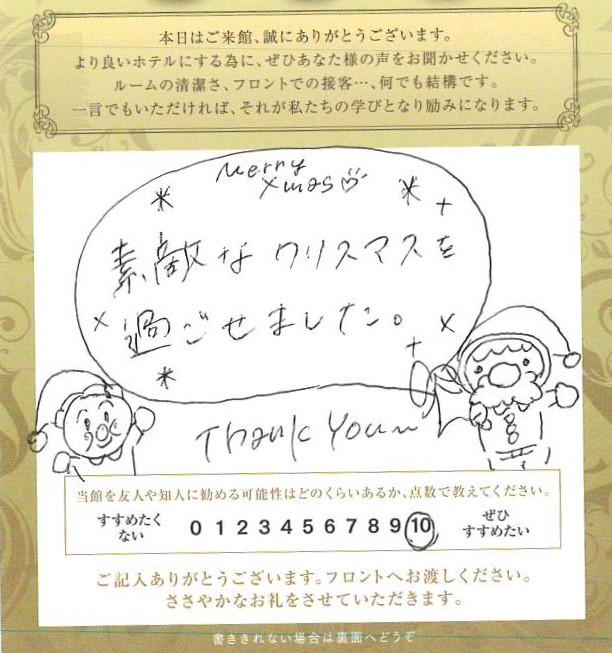 本日はご来館、誠にありがとうございます。
より良いホテルにする為に、ぜひあなた様の声をお聞かせください。
ルームの清潔さ、フロントでの接客…、何でも結構です。
一言でもいただければ、それが私たちの学びとなり励みになります。
Merry
Xmas
素敵なクリスマスを
過ごせました。
Thank You~
当館を友人や知人に勧める可能性はどのくらいあるか、点数で教えてください。
すすめたく
ない
0 1 2 3 4 5 6 7 8 9 10
ぜひ
すすめたい
ご記入ありがとうございます。フロントへお渡しください。
ささやかなお礼をさせていただきます。
書ききれない場合は裏面へどうぞ